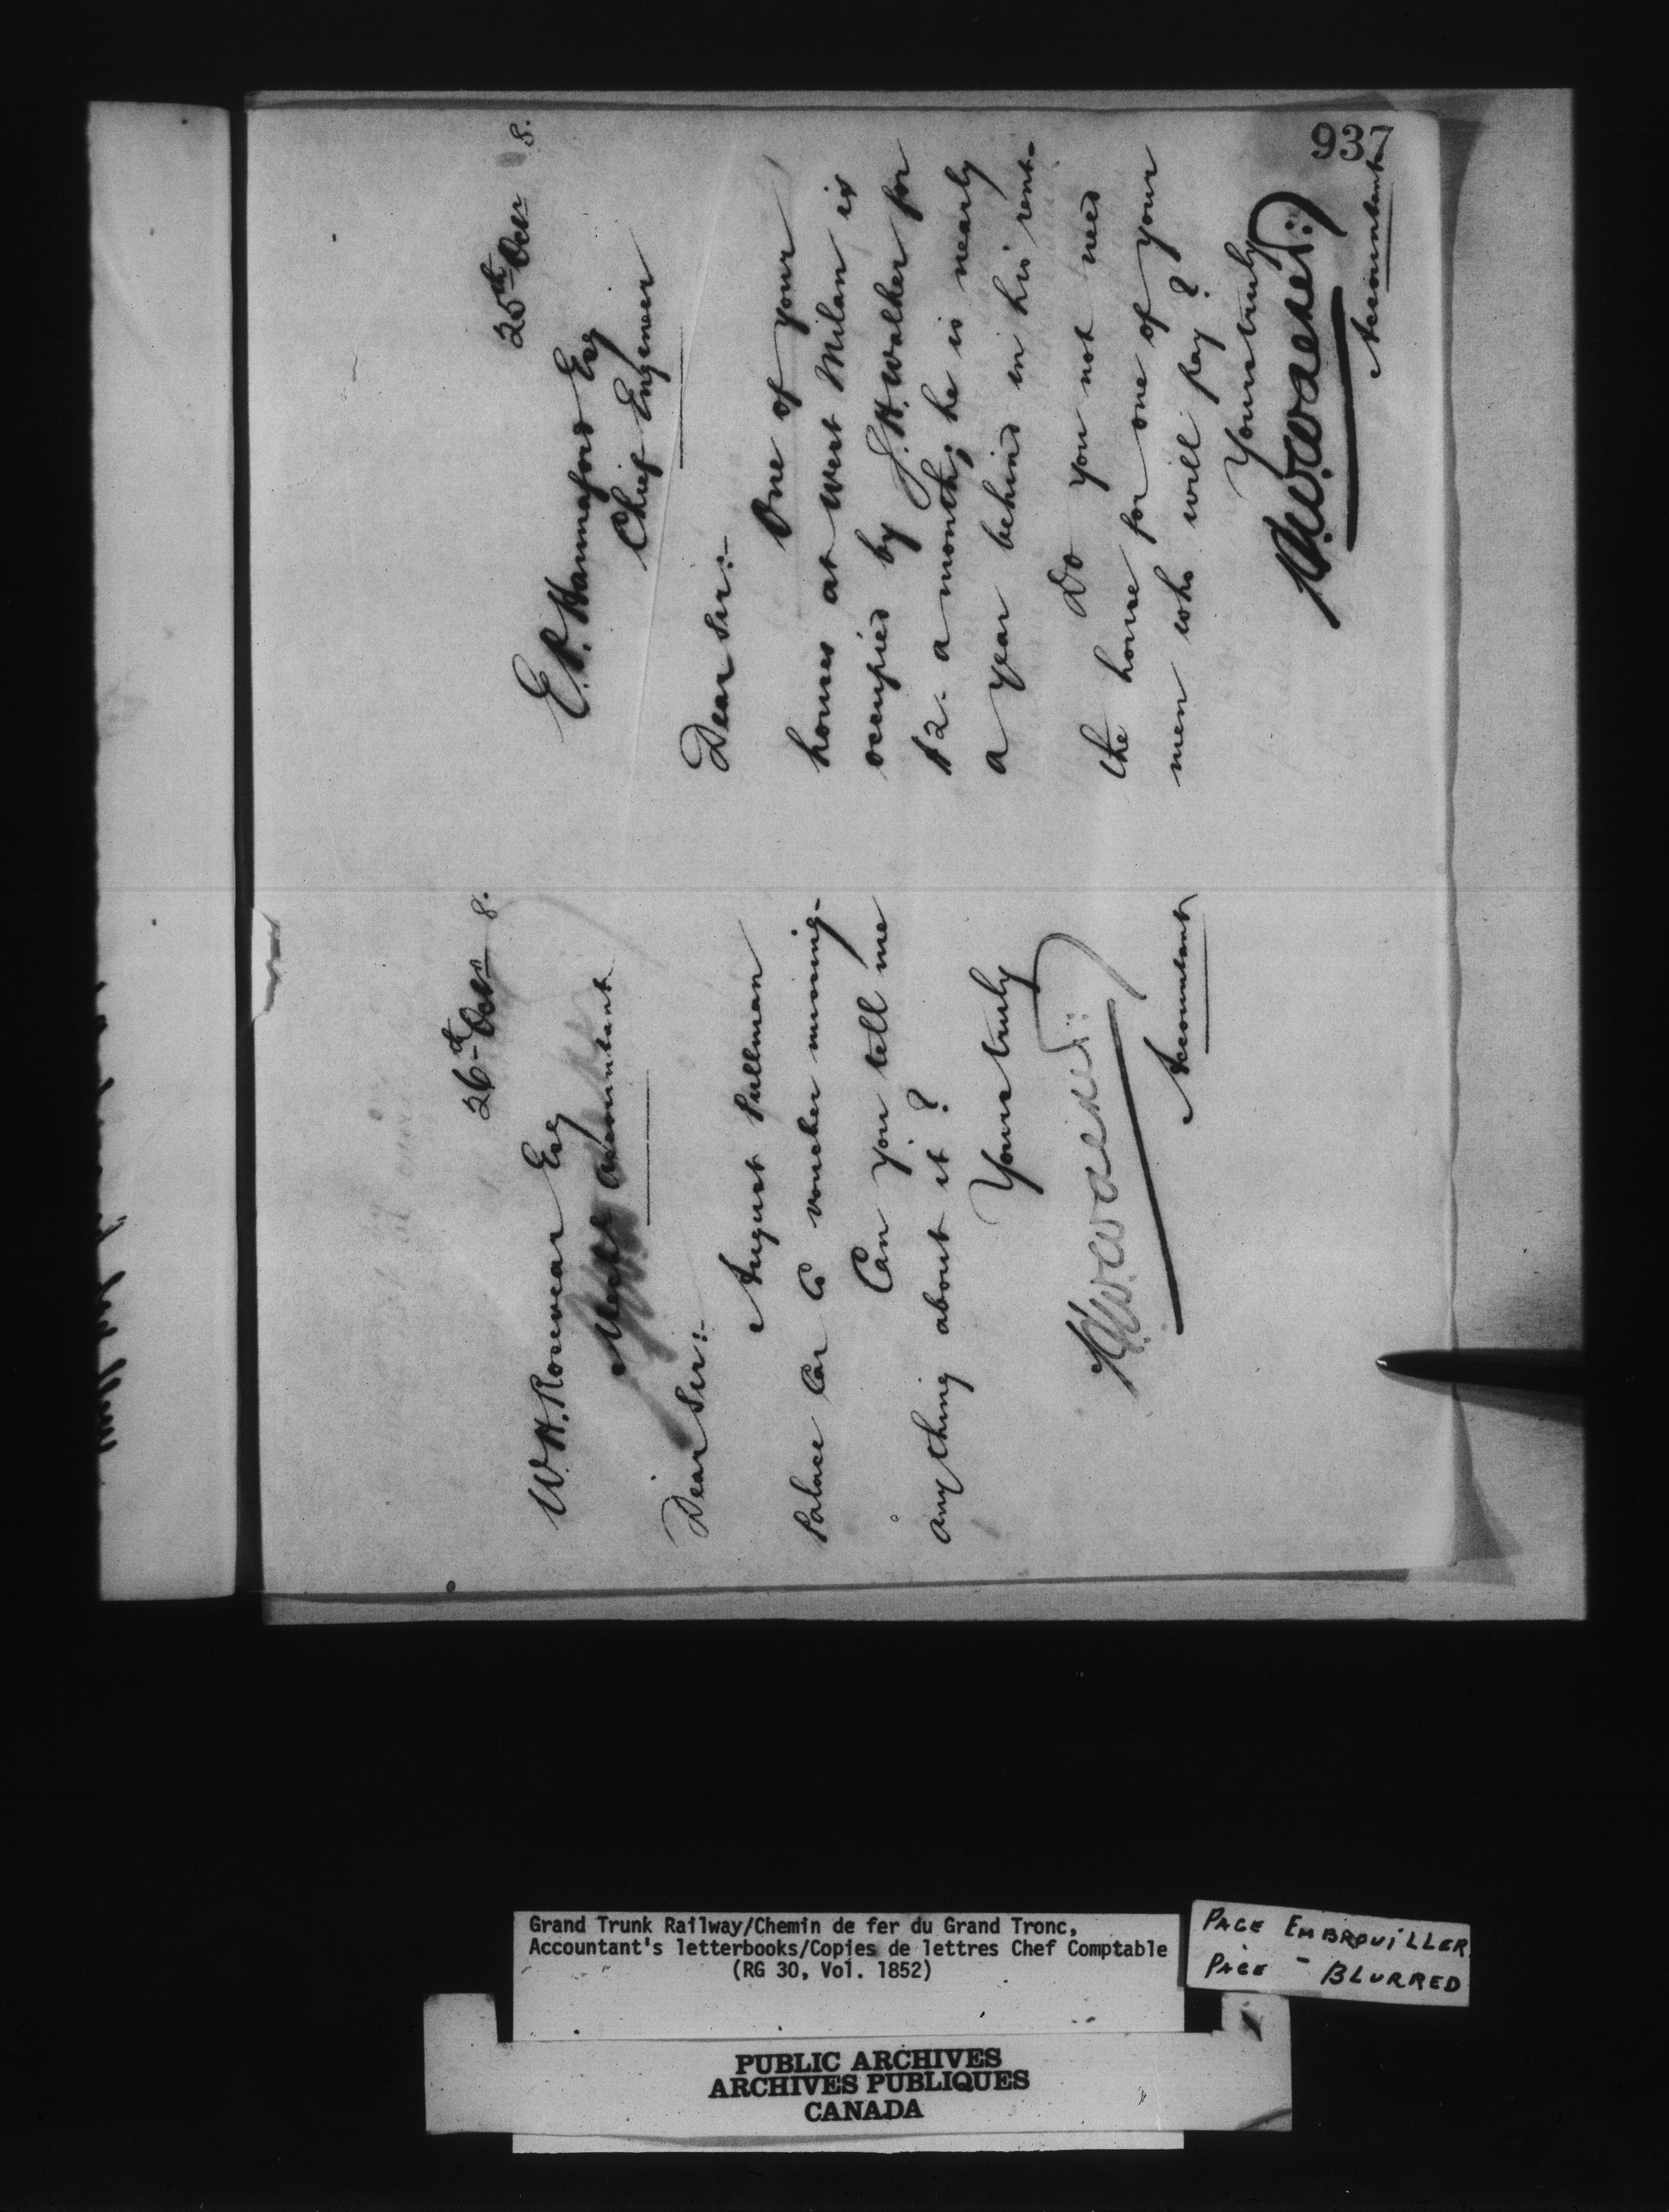 937
26th Octr 8.
W. H. Rosevear Esq
Mechl Accountant
Dear Sir:-
August Pullman
Palace Car Co voucher missing-
Can you tell me
anything about it?
Yours truly
Accountant
25th Octr 8.
E. P. Hannaford Esq
Chief Engineer
Dear Sir:-
One of your
houses at West Milan is
occupied by J. H. Walker for
$2- a month; he is nearly
a year behind in his rent-
Do you not need
the house for one of your
men who will pay?
Yours truly
Accountant
Grand Trunk Railway/Chemin de fer du Grand Tronc,
Accountant's letterbooks/Copies de lettres Chef Comptable
(RG 30, Vol. 1852)
PAGE EMBROUILLER
PAGE - BLURRED
PUBLIC ARCHIVES
ARCHIVES PUBLIQUES
CANADA